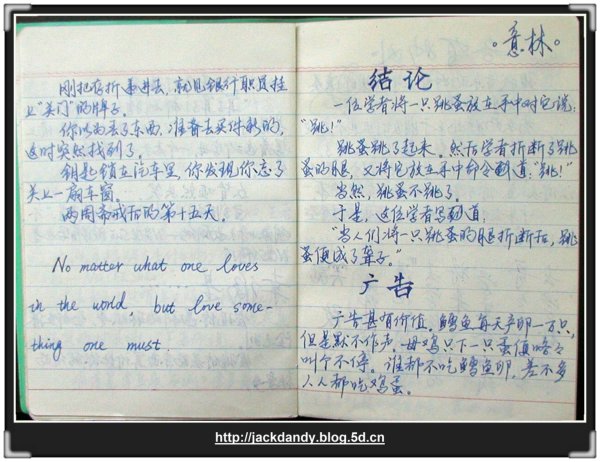 刚把存折递进去，就见银行职员挂
上“关门”的牌子。
你以为丢了东西，准备去买件新的，
这时突然找到了。
钥匙锁在汽车里，你发现你忘了
关上一扇车窗。
两周斋戒后的第十五天。
No matter what one loves
in the world, but love some-
thing one must
。意林。
结论
一位学者将一只跳蚤放在手中对它说：
“跳！”
跳蚤跳了起来。然后学者折断了跳
蚤的腿，又将它放在手中命令道：“跳！”
当然，跳蚤不跳了。
于是，这位学者写道：
“当人们将一只跳蚤的腿折断后，跳
蚤便成了聋子。”
广告
广告甚有价值。鳕鱼每天产卵一万只，
但是默不作声，母鸡只下一只蛋便咯咯
叫个不停。谁都不吃鳕鱼卵，差不多
人人都吃鸡蛋。
http://jackdandy.blog.5d.cn